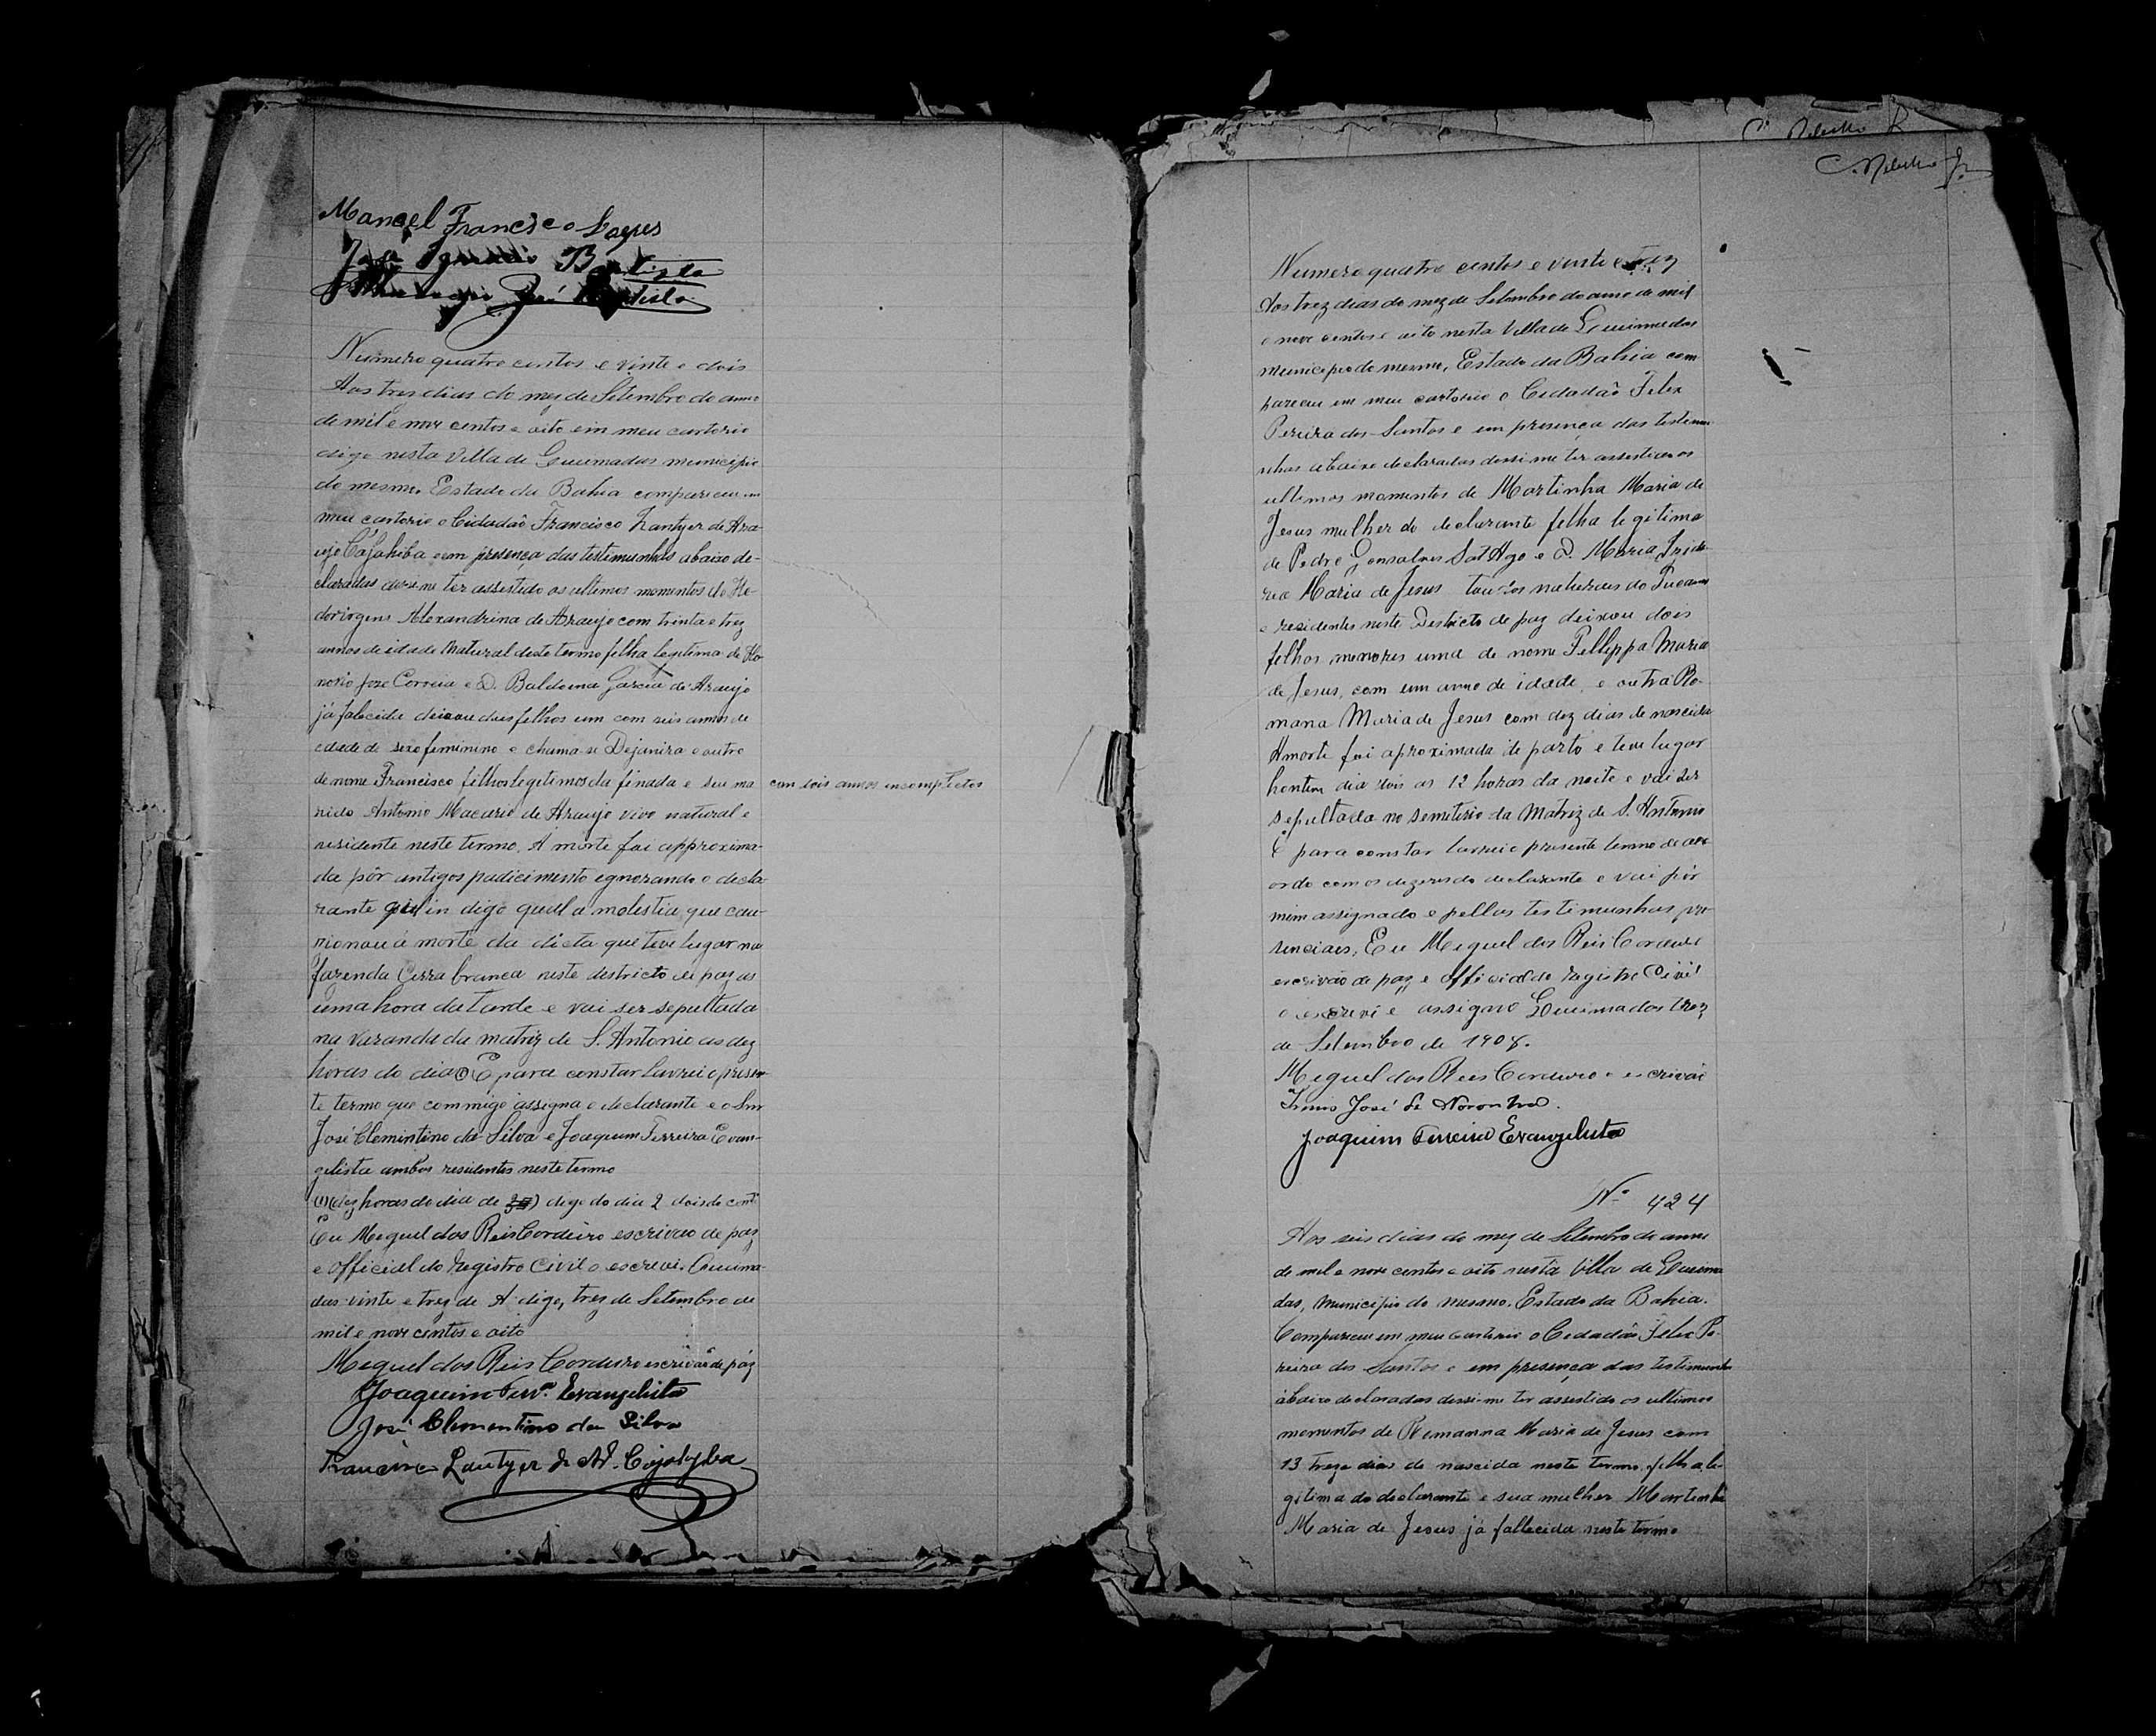 Manoel Francisco
José Batista
José Batista
Numero quatro centos e vinte e dois
Aos tres dias do mez de Setembro do anno
de mil e nove centos e oito em meu cartorio
digo nesta Villa de Queimadas municipio
do mesmo, Estado da Bahia compareceu em
meu cartorio o Cidadão Francisco Lantyer de Ara-
ujo Cajahiba e em presença das testimunhas abaixo de-
claradas disse me ter assestido os ultimos momentos de
Alexandrina de Araujo com trinta e trez
annos de idade natural deste termo felha legitima de Ho-
norio Jose Correia e D. Baldoina Garcia de Araujo
já falecida deixou dois felhos um com seis annos de
edade do sexo feminino e chama-se Dejanira e outro
de nome Francisco filhos legitimos da finada e seu ma com dois annos incompletos
rido Antonio Macario de Araujo vivo natural e
residente neste termo, A morte foi approxima-
da pôr antigos padicimento egnorando o decla-
rante digo qual a molestia que cau-
zionou a morte da dicta que teve lugar na
fazenda Cerra branca neste destricto de paz as
uma hora da tarde e vai ser sepultada
na varanda da matriz de S. Antonio as dez
horas do dia E para constar lavrei o presen-
te termo que commigo assigna o declarante e o Snr
José Clemintino da Silva e Joaquim Ferreira Evan-
gelista ambos residentes neste termo
(dez horas do dia de digo do dia 2 dois do cont
Eu Meguel dos Reis Cordeiro escrivão de paz
e official do registro Civil o escrevi. Queima-
das vinte e trez de A digo, trez de Setembro de
mil e nove centos e oito
Meguel dos Reis Cordeiro escrivão de páz
Joaquim Ferrª. Evangelista
José Clementino da Silva
Francisco Lantyer de Ar. Cajahyba
C. Jr.
Numero quatro centos e vinte e trez
Aos trez dias do mez de Setembro do anno de mil
e nove centos e oito nesta Villa de Queimadas
municipio do mesmo, Estado da Bahia com
pareceu em meu cartorio o Cidadão Felex
Pereira dos Santos e em presença das testemu
nhas abaixo declaradas dessi me ter assestido os
ultimos momentos de Martinha Maria de
Jesus mulher do declarante felha legitima
de Pedro Gonsalves Sat'Ago e D. Maria
Maria de Jesus naturaes do Tucano
e residentes neste Destricto de paz deixou dois
felhos menores uma de nome Fellippa Maria
de Jesus, com um anno de idade, e outra Ro-
mana Maria de Jesus com dez dias de nascida
A morte foi aproximada de parto e teve lugar
hontem dia dois as 12 horas da noite e vai ser
sepultada no semiterio da Matriz de S. Antonio
E para constar lavrei o presente termo de acc
ordo com os dizeres do declarante e vai pôr
mim assignado e pellas testimunhas pre
senciaes, Eu Meguel dos Reis Cordeiro
escrivão de paz e official do registro Civil
o escrevi e assigno Queimadas trez
de Setembro de 1908.
Meguel dos Reis Cordeiro o escrivão
José de Noronha.
Joaquim Ferreira Evangelista
Nº 424
Aos seis dias do mez de Setembro do anno
de mil e nove centos e oito nesta Villa de Queima
das, municipio do mesmo. Estado da Bahia.
Compareceu em meu cartorio o Cidadão Felex Pe-
reira dos Santos e em presença das testimunha
abaixo declaradas dessi-me ter assestido os ultimos
momentos de Romanna Maria de Jesus com
13 treze dias de nascida neste termo, felha le-
gitima do declarante e sua mulher Martinha
Maria de Jesus já fallecida neste termo